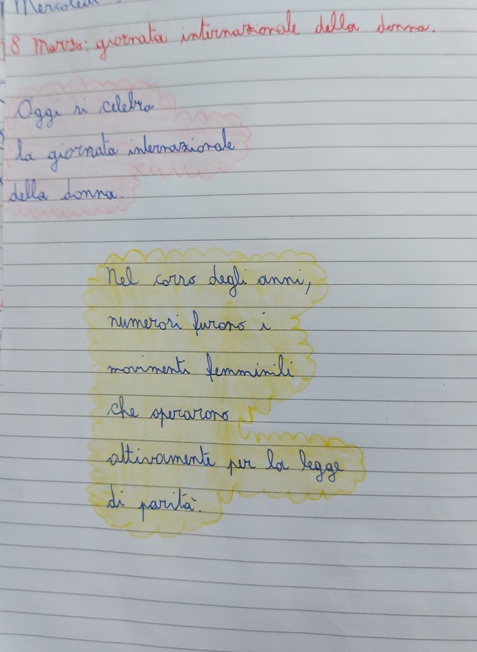 Mercoledì
8 Marzo: giornata internazionale della donna.
Oggi si celebra
la giornata internazionale
della donna.
Nel corso degli anni,
numerosi furono i
movimenti femminili
che operarono
attivamente per la legge
di parità.